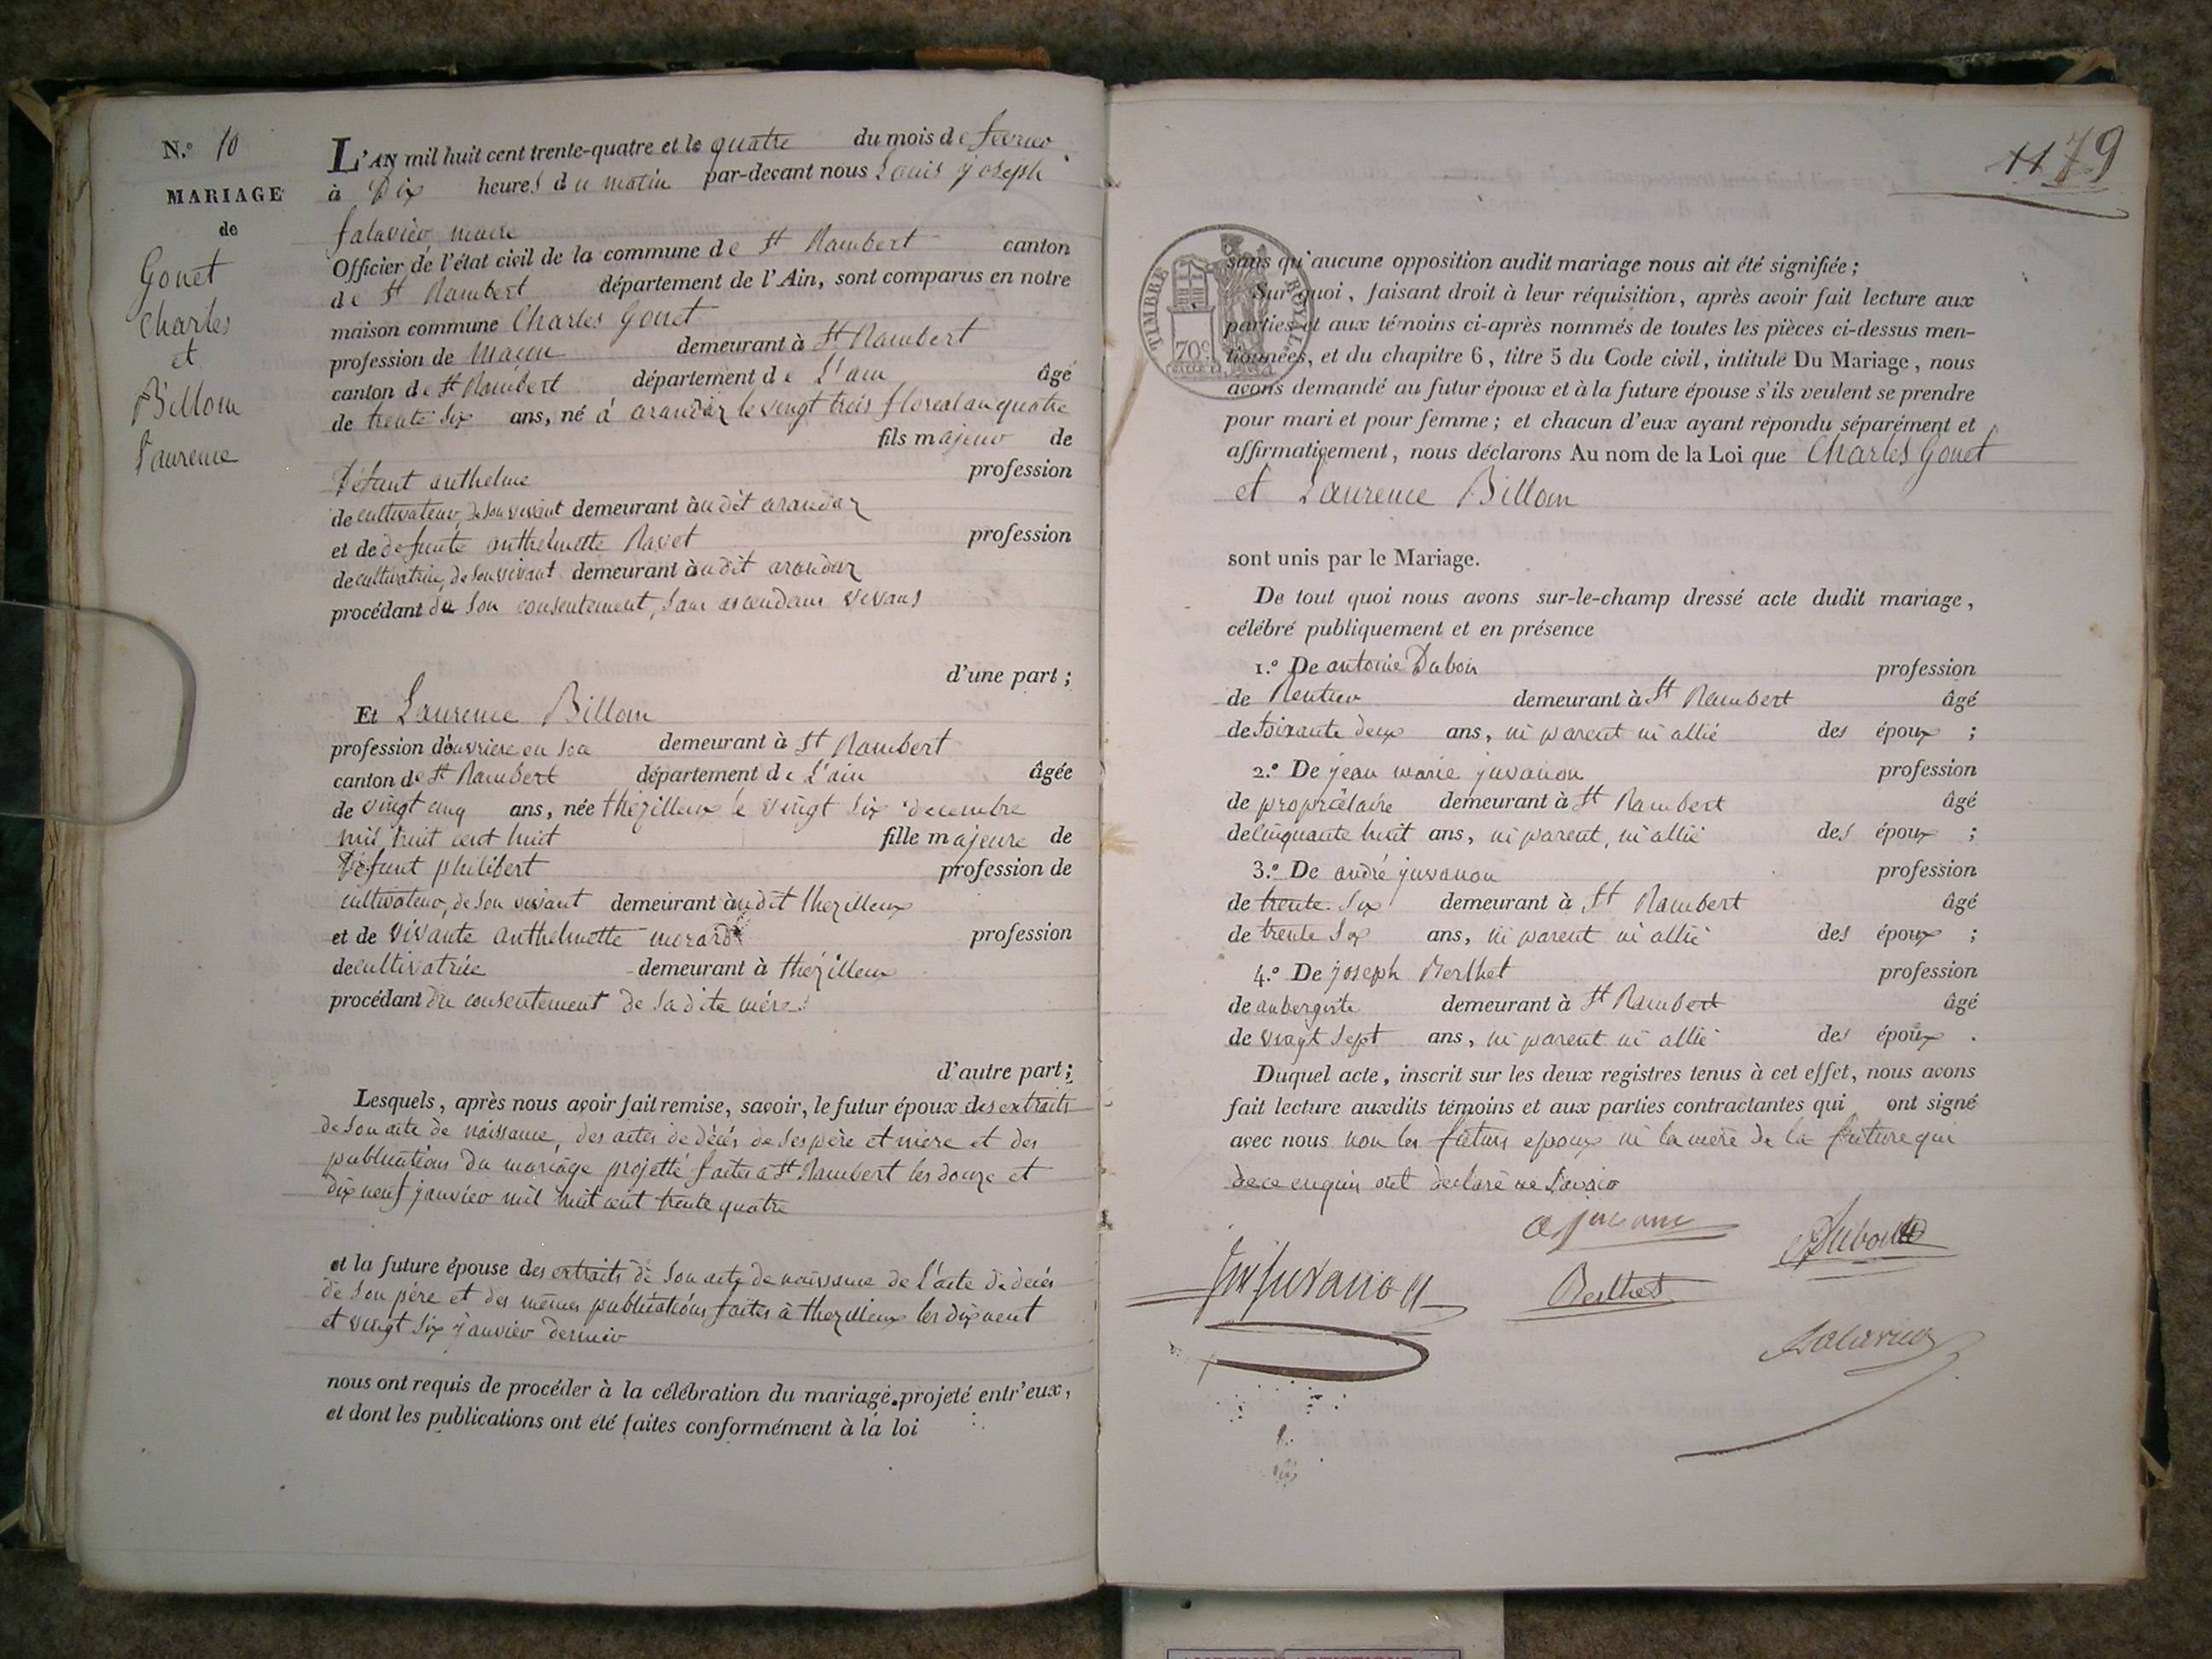 N.° 10
MARIAGE
de
Gonet
Charles
et
Billom
Laurence
L'AN mil huit cent trente-quatre et le quatre du mois de fevrier
à Dix heures du matin par-devant nous Louis joseph
falavier maire
Officier de l'état civil de la commune de St Rambert canton
de St Rambert département de l'Ain, sont comparus en notre
maison commune Charles Gonet
profession de maçon demeurant à St Rambert
canton de St Rambert département de L'ain âgé
de trente six ans, né à arandaz le vingt trois floreal an quatre
fils majeur de
Défunt anthelme profession
de cultivateur, de son vivant demeurant àudit arandaz
et de defunte anthelmette Ravet profession
de cultivatrice, de son vivant demeurant àudit arandaz
procédant de son consentement, sans ascendans vivans
d'une part ;
Et Laurence Billom
profession d'ouvriere en soie demeurant à St Rambert
canton de St Rambert département de L'ain âgée
de vingt cinq ans, née thézilleux le vingt six decembre
mil huit cent huit fille majeure de
Défunt philibert profession de
cultivateur, de son vivant demeurant àudit thezilleux
et de vivante anthelmette profession
de cultivatrice demeurant à thézilleux
procédant du consentement de sa dite mére
d'autre part ;
Lesquels, après nous avoir fait remise, savoir, le futur époux des extraits
de son acte de naissance, des actes de décés de ses père et mère et des
publications du mariage projetté faites à St Rambert les douze et
dix neuf janvier mil huit cent trente quatre
et la future épouse des extraits de son acte de naissance de l'acte de decés
de son pére et des mêmes publications faites à thezilleux les dix neuf
et vingt six janvier dernier
nous ont requis de procéder à la célébration du mariage projeté entr'eux,
et dont les publications ont été faites conformément à la loi
79
TIMBRE ROYAL
70c
sans qu'aucune opposition audit mariage nous ait été signifiée ;
Sur quoi, faisant droit à leur réquisition, après avoir fait lecture aux
parties et aux témoins ci-après nommés de toutes les pièces ci-dessus men-
tionnées, et du chapitre 6, titre 5 du Code civil, intitulé Du Mariage, nous
avons demandé au futur époux et à la future épouse s'ils veulent se prendre
pour mari et pour femme ; et chacun d'eux ayant répondu séparément et
affirmativement, nous déclarons Au nom de la Loi que Charles Gonet
et Laurence Billom
sont unis par le Mariage.
De tout quoi nous avons sur-le-champ dressé acte dudit mariage,
célébré publiquement et en présence
1.° De antoine Dubois profession
de Rentier demeurant à St Rambert âgé
de soixante deux ans, ni parent ni allié des époux ;
2.° De jean marie juvanon profession
de propriétaire demeurant à St Rambert âgé
de cinquante huit ans, ni parent, ni allié des époux ;
3.° De andré juvanon profession
de trente six demeurant à St Rambert âgé
de trente six ans, ni parent ni allié des époux ;
4.° De joseph Berthet profession
de aubergiste demeurant à St Rambert âgé
de vingt sept ans, ni parent ni allié des époux .
Duquel acte, inscrit sur les deux registres tenus à cet effet, nous avons
fait lecture auxdits témoins et aux parties contractantes qui ont signé
avec nous non les futurs epoux ni la mère de la future qui
de ce enquis ont declaré ne savoir
Juvanon
Berthet